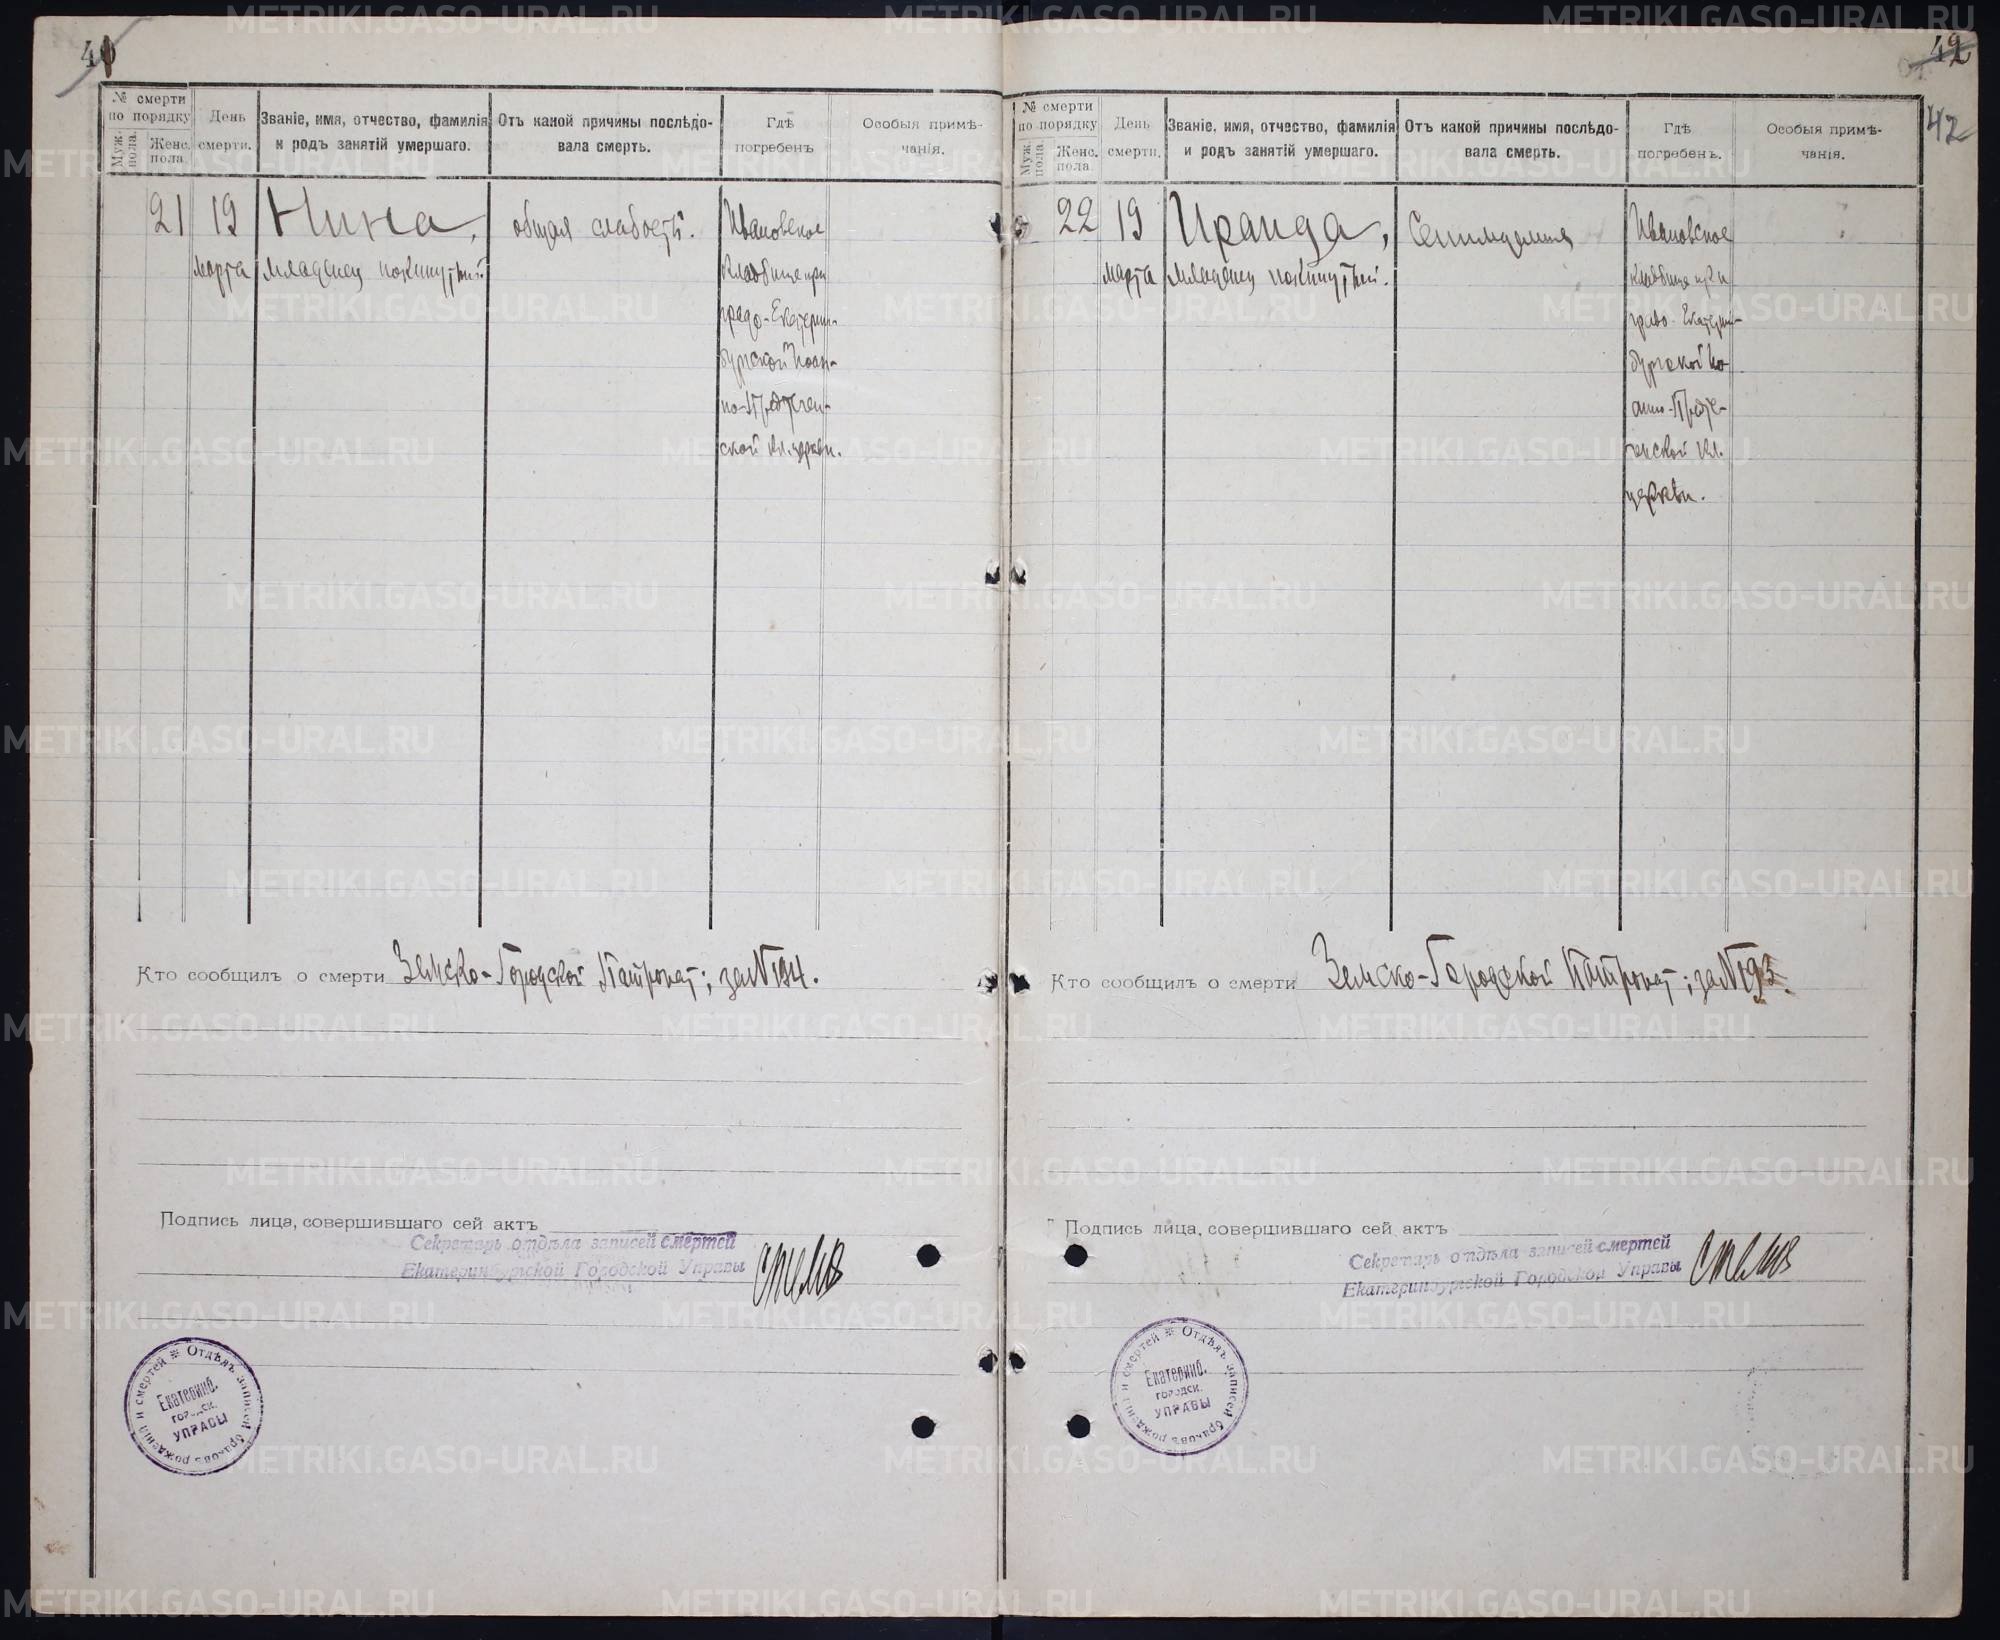 41
№ смерти по порядку
Муж. пола.
Женс. пола.
День смерти.
Званіе, имя, отчество, фамилія и родъ занятій умершаго.
Отъ какой причины послѣдовала смерть.
Гдѣ погребенъ
Особыя примѣчанія.
21
19 марта
Нина,
младенец покинутый.
общая слабость.
Ивановское
кладбище при
градо-Екатерин-
бургской Иоан-
но-Предтечен-
ской кл. церкви.
Кто сообщилъ о смерти Земско-Городской Патронат; за №194.
Подпись лица, совершившаго сей актъ
Секретарь отдѣла записей смертей
Екатеринбургской Городской Управы
Отдѣлъ записей браковъ рожденій и смертей
Екатеринб.
городск.
УПРАВЫ
42
42
№ смерти по порядку
Муж. пола.
Женс. пола.
День смерти.
Званіе, имя, отчество, фамилія и родъ занятій умершаго.
Отъ какой причины послѣдовала смерть.
Гдѣ погребенъ.
Особыя примѣчанія.
22
19 марта
Ираида,
младенец покинутый.
Ивановское
кладбище при
градо-Екатерин-
бургской Ио-
анно-Предте-
ченской кл.
церкви.
Кто сообщилъ о смерти Земско-Городской Патронат; за №193.
Подпись лица, совершившаго сей актъ
Секретарь отдѣла записей смертей
Екатеринбургской Городской Управы
Отдѣлъ записей браковъ рожденій и смертей
Екатеринб.
городск.
УПРАВЫ
METRIKI.GASO-URAL.RU